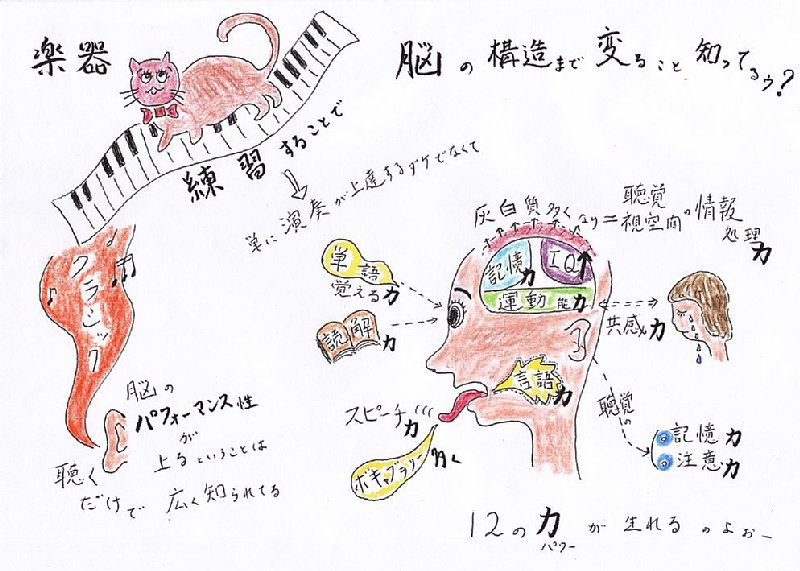 楽器
脳の構造まで変ること知ってるゥ?
練習することで
単に演奏が上達するダケでなくて
クラシック
脳の
パフォーマンス性
が
上るということは
聴く
だけで広く知られてる
灰白質多くなり=聴覚
視空間の情報
処理力
単語
覚える力
読解力
記憶力
IQ
運動能力
共感力
言語力
スピーチ力
ボキャブラリー多く
聴覚の
記憶力
注意力
12の力が生れるのよぉー
パワー